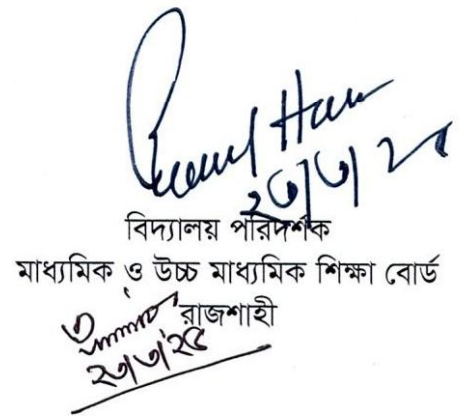 ২৩/৩/২৫
বিদ্যালয় পরিদর্শক
মাধ্যমিক ও উচ্চ মাধ্যমিক শিক্ষা বোর্ড
রাজশাহী
২৩/৩/২৫